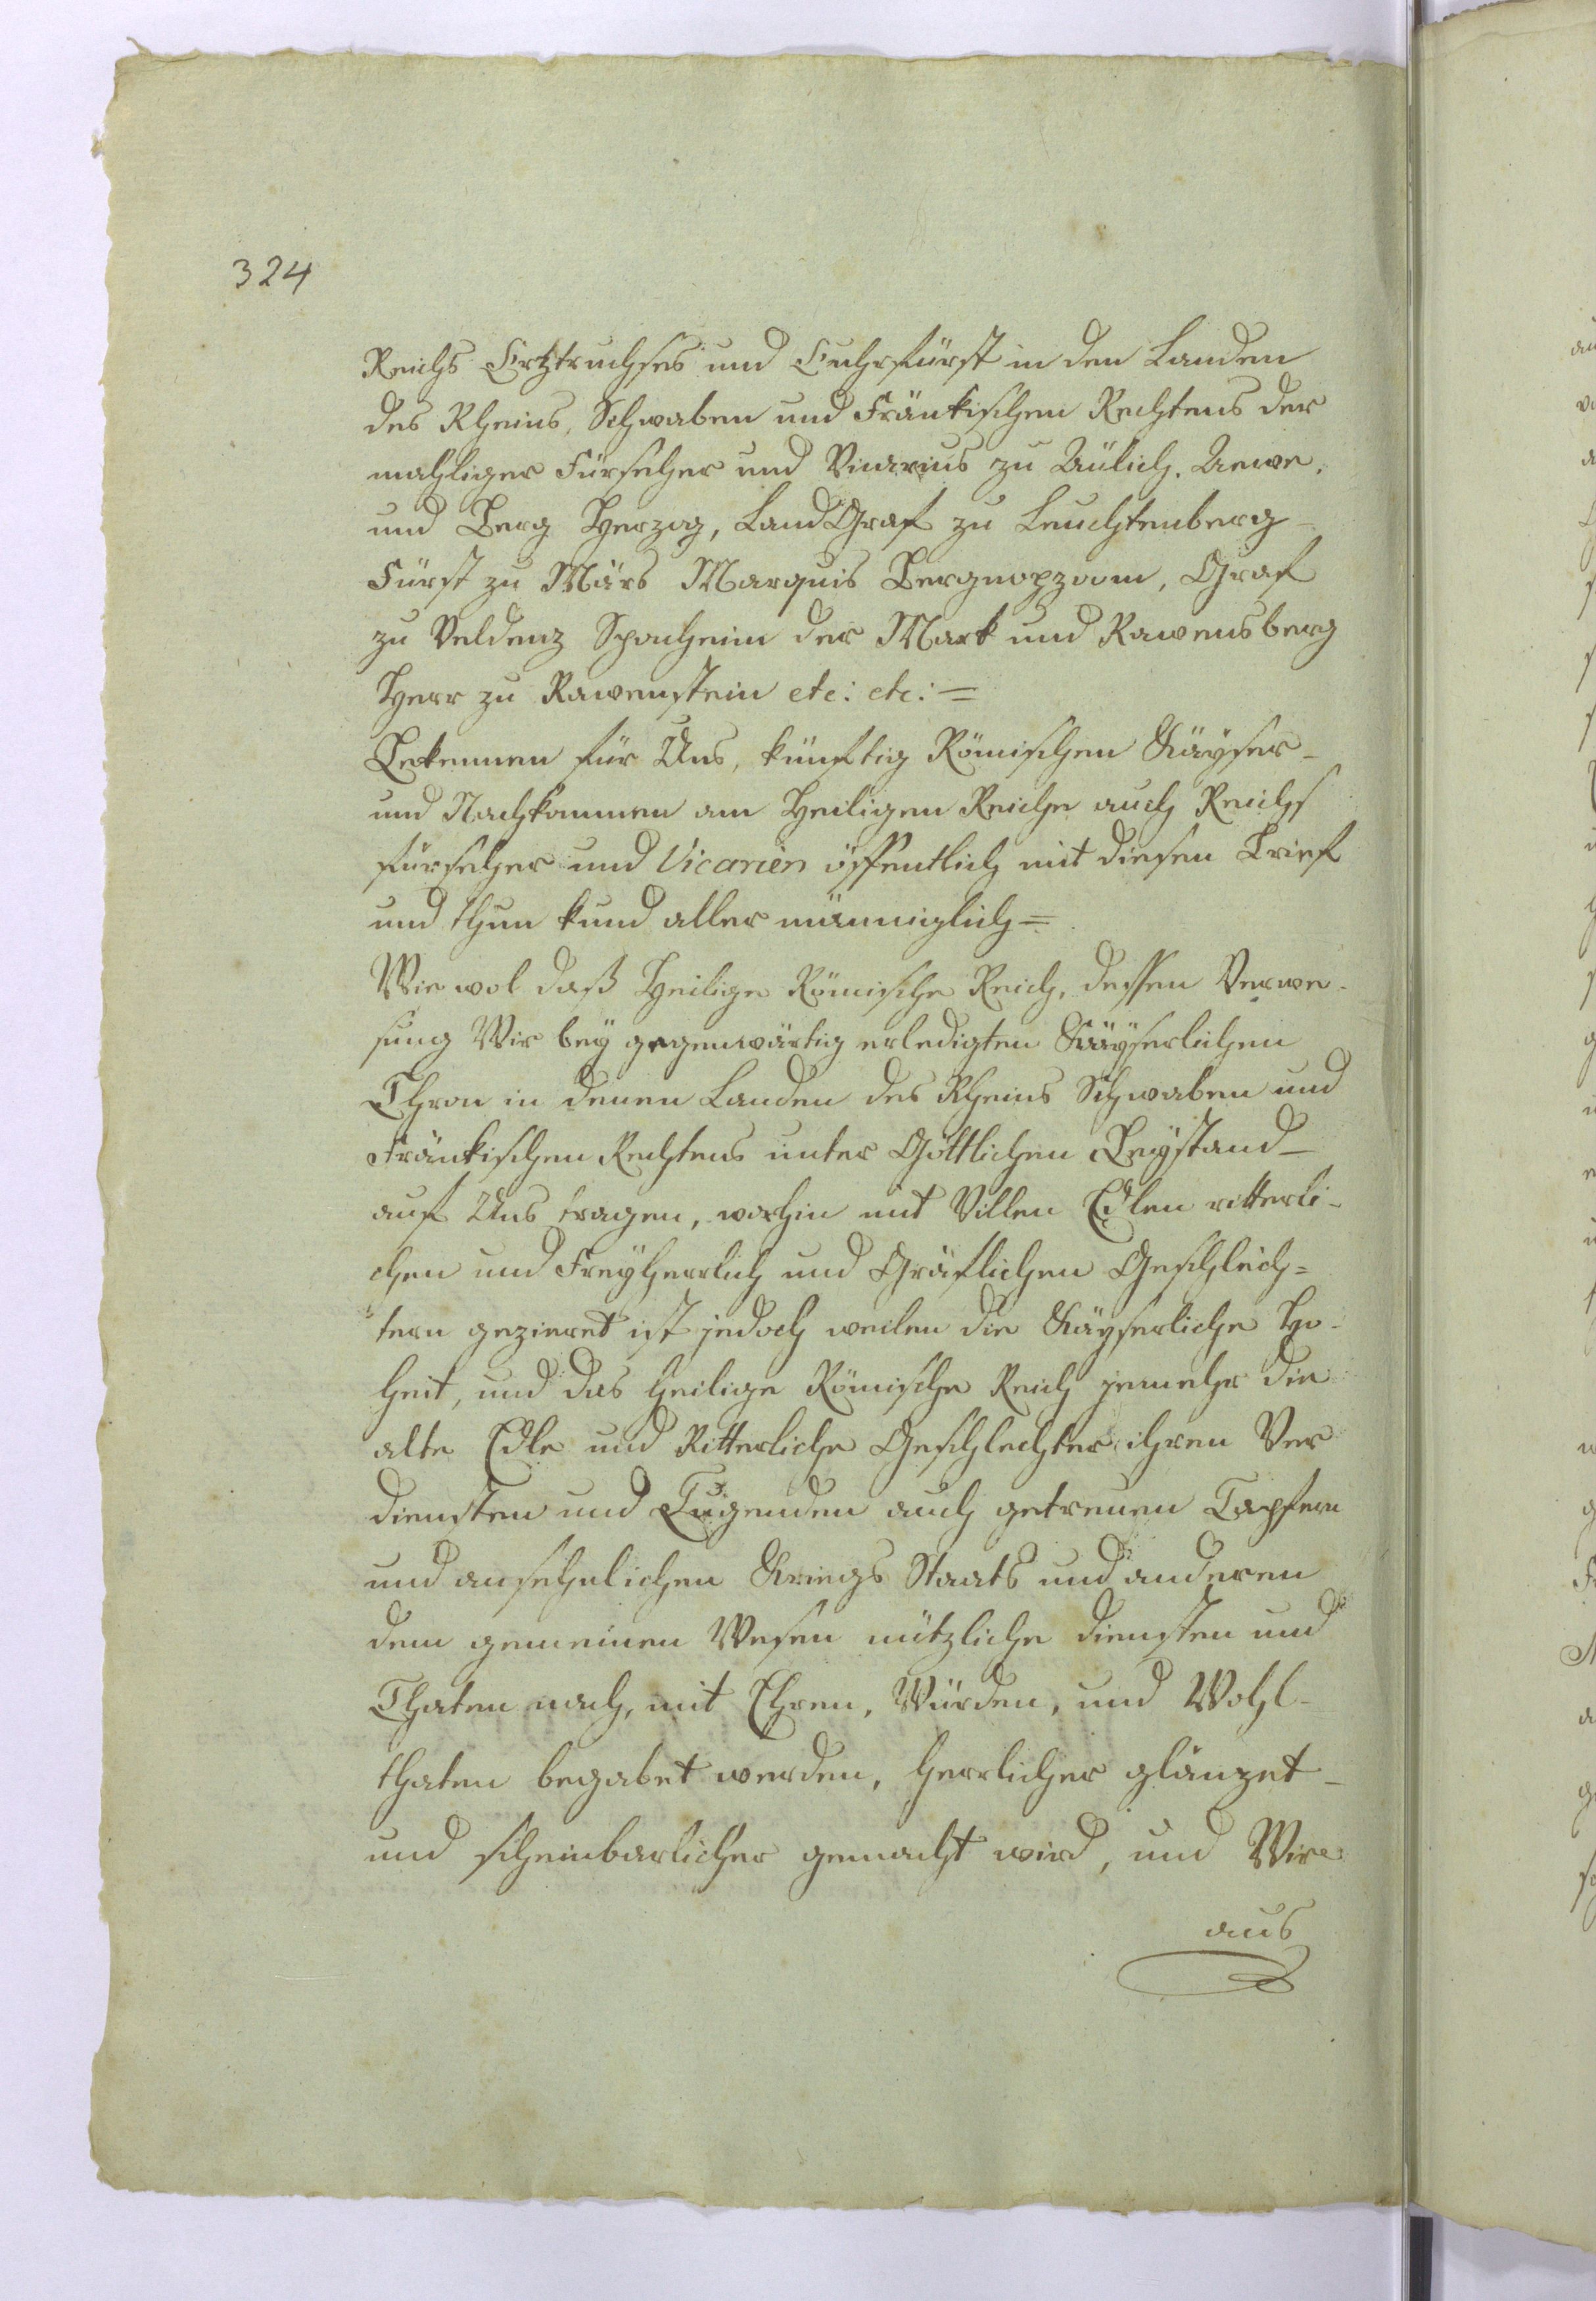 324
Reichs Ertztruchses und Cuhrfürst in den Landen
des Rheins, Schwaben und Fränkischen Rechtens der
mahliger Fürseher und Vicarius zu Gülich, Clewe,
und Berg Herzog, LandGraf zu Leuchtenberg-
Fürst zu Märs Marquis Bergenopzoom, Graf
zu Veldenz Sponheim der Mark und Rawensberg
Herr zu Rawenstein etc: etc: =
Bekennen für Uns, künftig Römischen Käyser-
und Nachkommen am Heiligen Reiche auch Reichs
fürseher und Vicarien öffentlich mit diesen Brief
und thun kund aller männiglich=
Wie wol daß Heilige Römische Reich, dessen Verwe-
sung Wir bey gegenwärtig erledigten Kayserlichen
Thron in denen Landen des Rheins Schwaben und
Fränkischen Rechtens unter Göttlichen Beystand-
auf Uns tragen, vorhin mit Villen Edlen ritterli-
chen und Freyherrlich und Gräflichen Geschlech=
tern gezieret ist jedoch weilen die Käyserliche Ho-
heit, und das heilige Römische Reich jemehr die
alte Edle und Ritterliche Geschlechter ihren Ver
diensten und Tugenden auch getreuen Tapfern
und ansehnlichen Kriegs Staats und anderen
dem gemeinen Wesen nützliche diensten und
Thaten nach, mit Ehren, Würden, und Wohl-
thaten begabet werden, herrlicher glänzet-
und scheinbarlicher gemacht wird, und Wir
aus